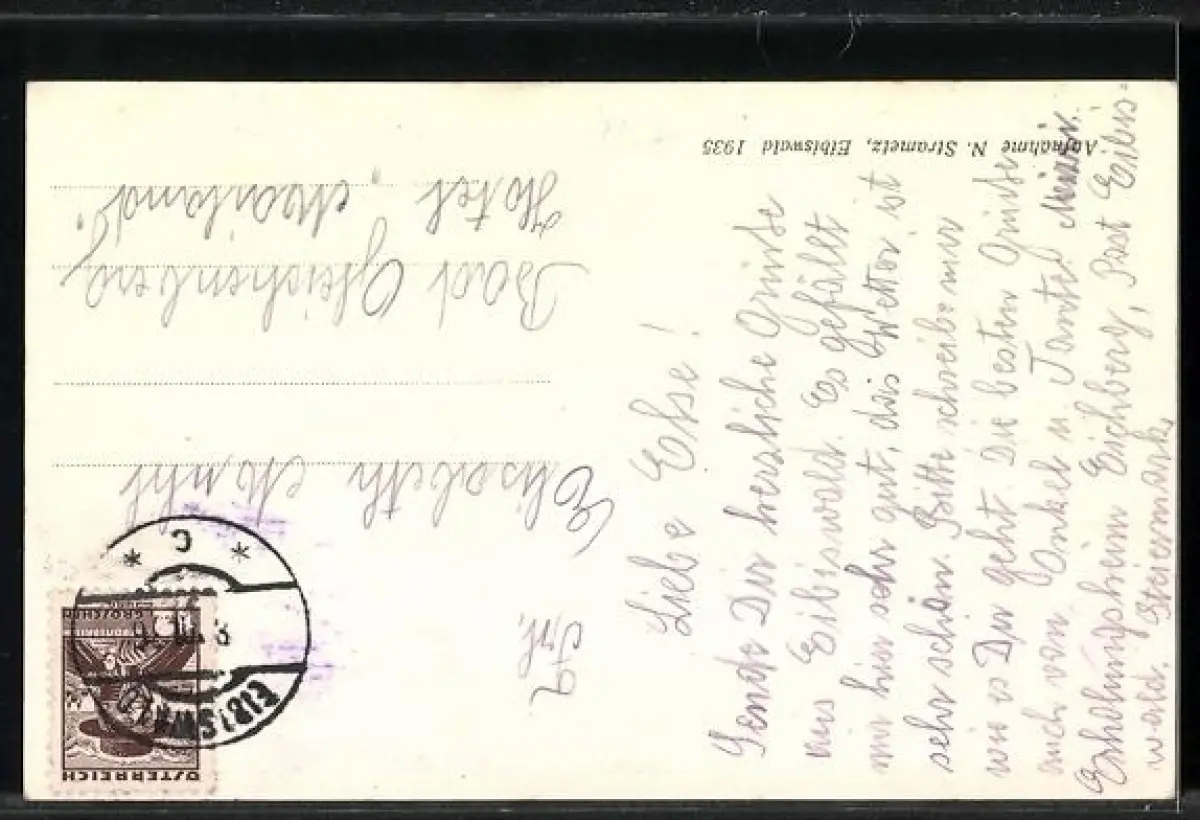 Aufnahme N. Strametz, Eibiswald 1935
Liebe Else!
Sende Dir herzliche Grüße
aus Eibiswald. Es gefällt
mir hier sehr gut, das Wetter ist
sehr schön. Bitte schreibe mir
wie es Dir geht. Die besten Grüße
auch von Onkel u. Tante.
Erholungsheim Eichberg, Post Eibis-
wald. Steiermark.
ÖSTERREICH
GROSCHEN
EIBISWALD
8. VIII.
* C *
Frl.
Elisabeth
Bad Gleichenberg
Hotel „Mailand"